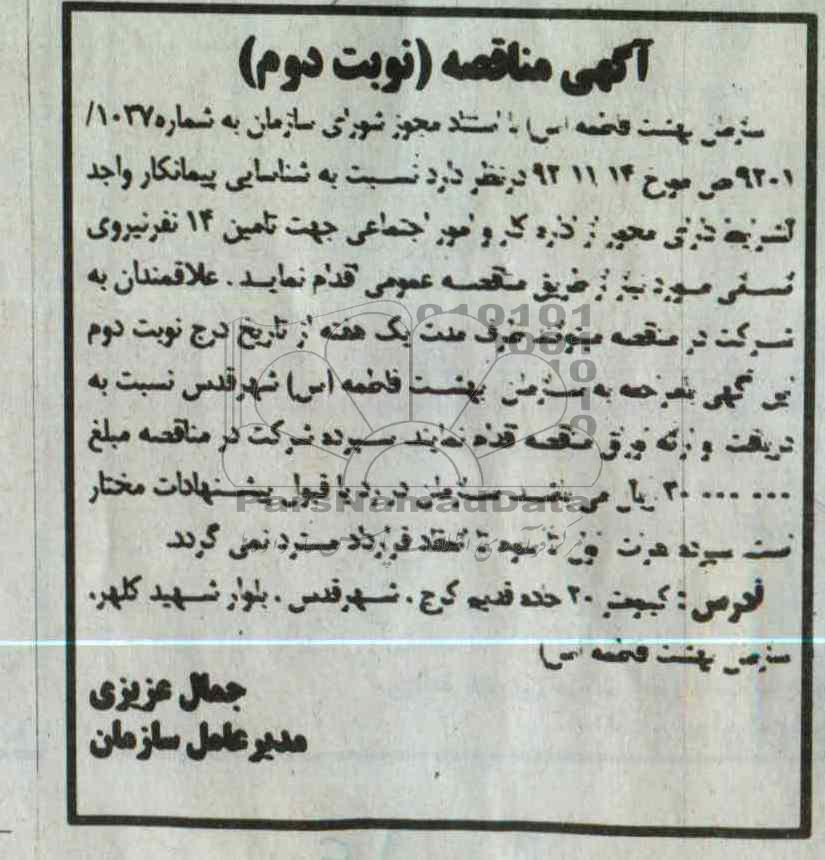 آگهی مناقصه (نوبت دوم)
سازمان بهشت فاطمه (س) با استناد مجوز شورای سازمان به شماره ۱۰۳۷/
۹۲۰۱ص مورخ ۱۴ ۱۱ ۹۲ درنظر دارد نسبت به شناسایی پیمانکار واجد
الشرایط دارای مجوز از اداره کار و امور اجتماعی جهت تامین ۱۴ نفرنیروی
انسانی مورد نیاز از طریق مناقصه عمومی اقدام نماید . علاقمندان به
شرکت در مناقصه میتوانند ظرف مدت یک هفته از تاریخ درج نوبت دوم
این آگهی با مراجعه به سازمان بهشت فاطمه (س) شهرقدس نسبت به
دریافت و ارائه اوراق مناقصه اقدام نمایند سپرده شرکت در مناقصه مبلغ
۳۰ ۰۰۰ ۰۰۰ ریال می باشد سازمان در رد یا قبول پیشنهادات مختار
است سپرده نفرات اول تا سوم تا انعقاد قرارداد مسترد نمی گردد
آدرس : کیلومتر ۲۰ جاده قدیم کرج . شهرقدس . بلوار شهید کلهر.
سازمان بهشت فاطمه (س)
جمال عزیزی
مدیرعامل سازمان
ParsNamadData